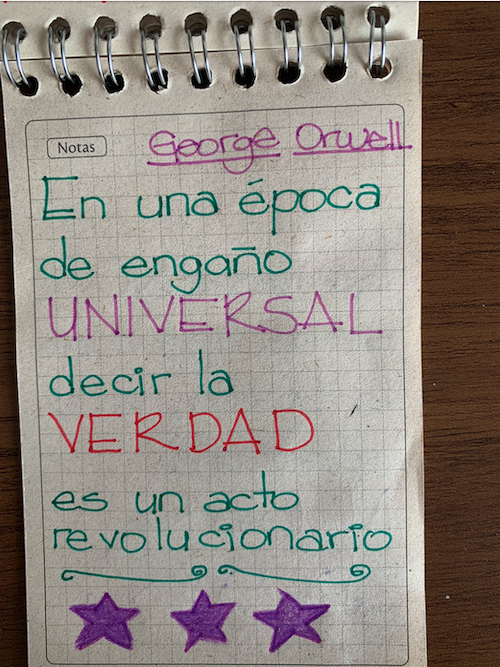 Notas
George Orwell
En una época
de engaño
UNIVERSAL
decir la
VERDAD
es un acto
revolucionario